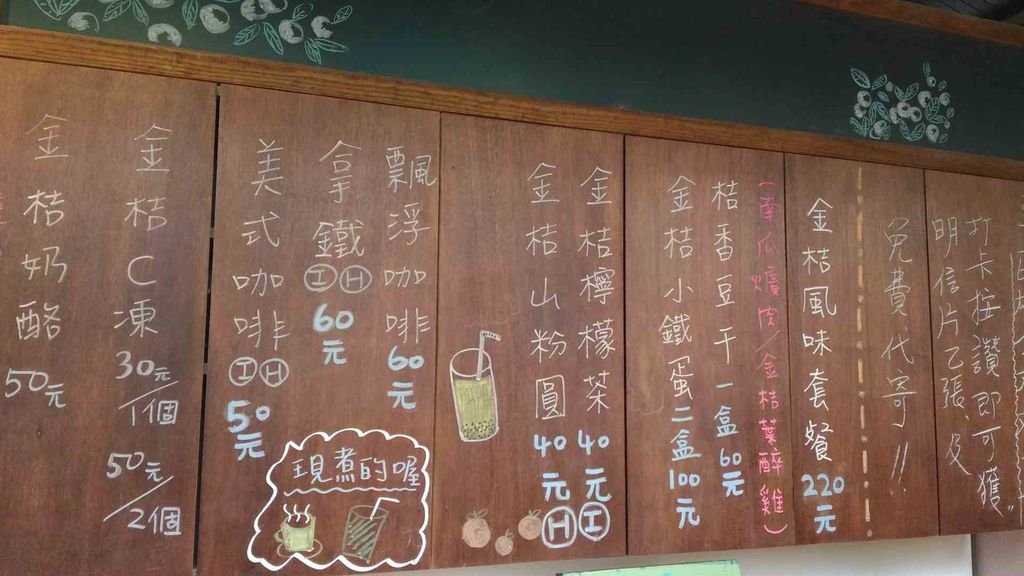 打卡按讚即可獲
明信片乙張及
免費代寄!!
金桔風味套餐220元
(南瓜爌肉/金桔葉醉雞)
桔香豆干一盒60元
金桔小鐵蛋二盒100元
金桔檸檬茶40元 I
金桔山粉圓40元 H
飄浮咖啡60元
拿鐵 I H 60元
美式咖啡 I H 50元
現煮的喔
金桔C凍30元/1個
50元/2個
金桔奶酪50元